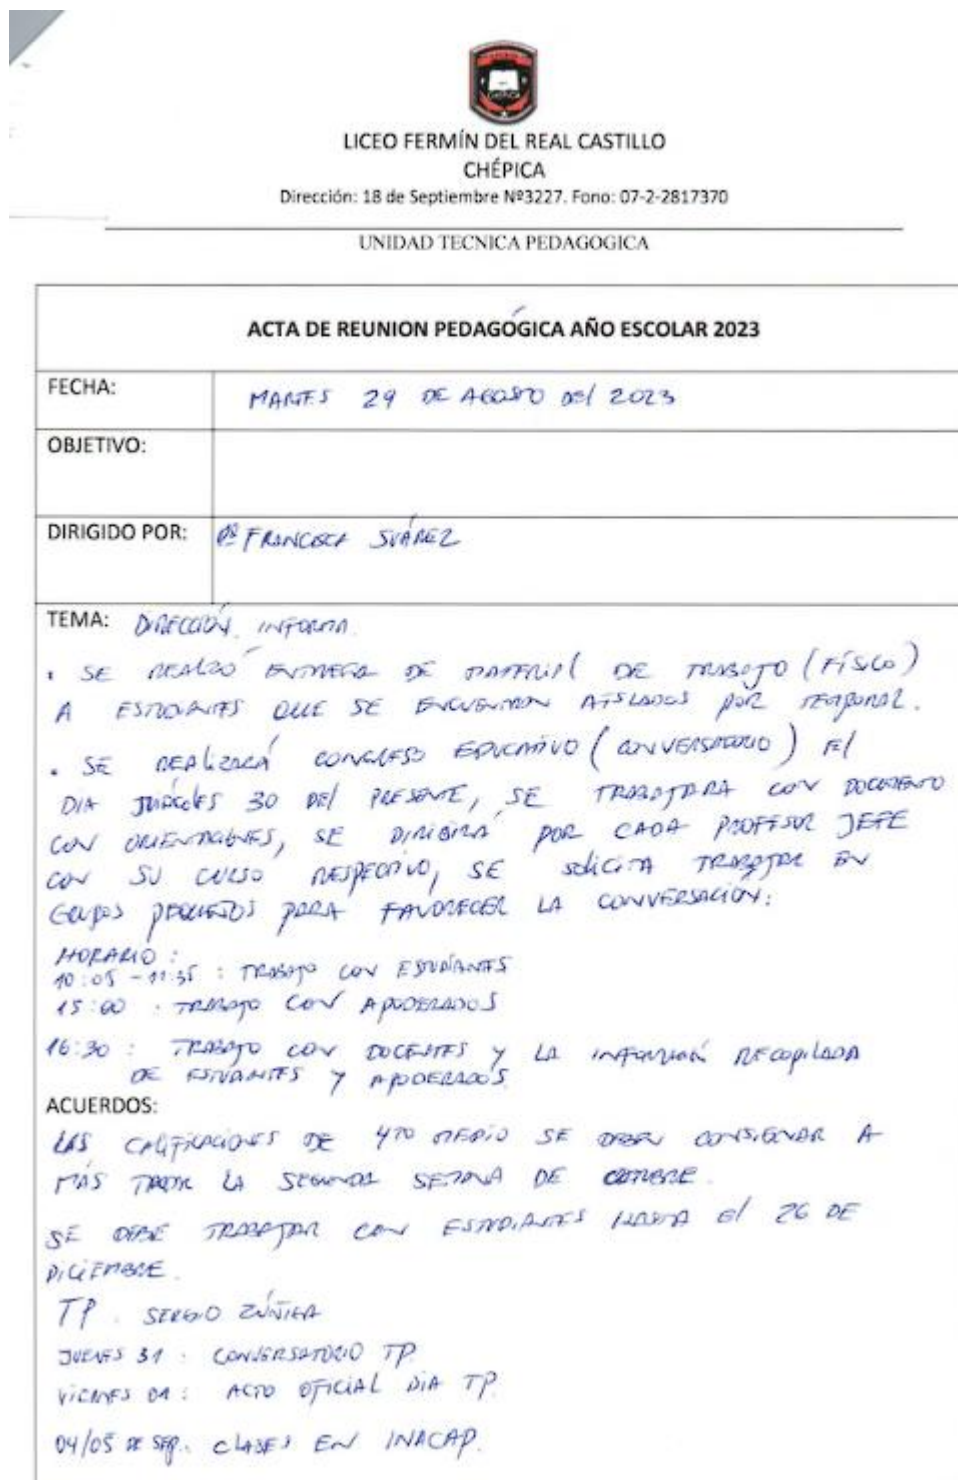 LICEO FERMÍN DEL REAL CASTILLO
CHÉPICA
Dirección: 18 de Septiembre Nº3227. Fono: 07-2-2817370
UNIDAD TECNICA PEDAGOGICA
ACTA DE REUNION PEDAGÓGICA AÑO ESCOLAR 2023
FECHA: MARTES 29 DE AGOSTO DEL 2023
OBJETIVO:
DIRIGIDO POR: FRANCISCA SUÁREZ
TEMA: DIRECCIÓN INFORMA.
. SE REALIZÓ ENTREGA DE MATERIAL DE TRABAJO (FÍSICO)
A ESTUDIANTES QUE SE ENCUENTRAN AISLADOS POR TEMPORAL.
. SE REALIZARÁ CONGRESO EDUCATIVO (CONVERSATORIO) EL
DIA MIÉRCOLES 30 DEL PRESENTE, SE TRABAJARA CON DOCUMENTO
CON ORIENTACIONES, SE DIRIGIRÁ POR CADA PROFESOR JEFE
CON SU CURSO RESPECTIVO, SE SOLICITA TRABAJAR EN
GRUPOS PEQUEÑOS PARA FAVORECER LA CONVERSACIÓN:
HORARIO:
10:05 - 11:35 : TRABAJO CON ESTUDIANTES
15:00 : TRABAJO CON APODERADOS
16:30 : TRABAJO CON DOCENTES Y LA INFORMACIÓN RECOPILADA
DE ESTUDIANTES Y APODERADOS
ACUERDOS:
LAS CALIFICACIONES DE 4TO MEDIO SE DEBEN CONSIGNAR A
MÁS TARDAR LA SEGUNDA SEMANA DE OCTUBRE.
SE DEBE TRABAJAR CON ESTUDIANTES HASTA EL 26 DE
DICIEMBRE.
TP. SERGIO ZÚÑIGA
JUEVES 31 : CONVERSATORIO TP.
VIERNES 01 : ACTO OFICIAL DIA TP.
04/05 DE SEP. CLASES EN INACAP.